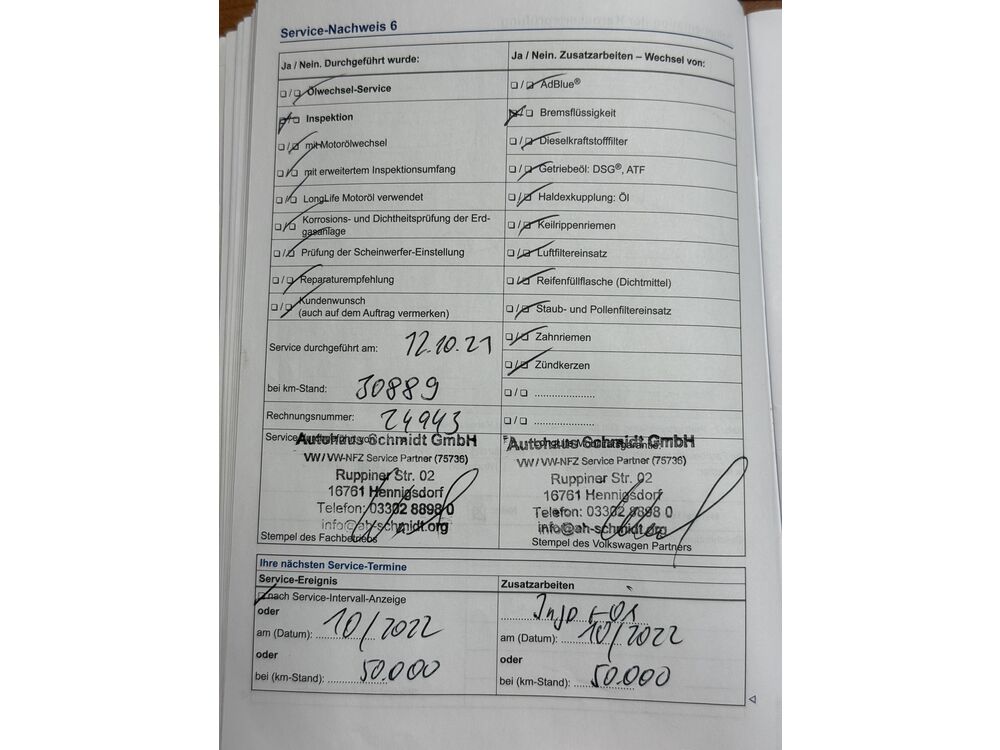 Service-Nachweis 6
Ja / Nein. Durchgeführt wurde:
❏ / ❏ Ölwechsel-Service
❏ / ❏ Inspektion
❏ / ❏ mit Motorölwechsel
❏ / ❏ mit erweitertem Inspektionsumfang
❏ / ❏ LongLife Motoröl verwendet
❏ / ❏ Korrosions- und Dichtheitsprüfung der Erd-
gasanlage
❏ / ❏ Prüfung der Scheinwerfer-Einstellung
❏ / ❏ Reparaturempfehlung
❏ / ❏ Kundenwunsch
(auch auf dem Auftrag vermerken)
Service durchgeführt am: 12.10.21
bei km-Stand: 30889
Rechnungsnummer: 24943
Autohaus Schmidt GmbH
VW / VW-NFZ Service Partner (75736)
Ruppiner Str. 02
16761 Hennigsdorf
Telefon: 03302 8898 0
info@ah-schmidt.org
Stempel des Fachbetriebs
Ja / Nein. Zusatzarbeiten – Wechsel von:
❏ / ❏ AdBlue®
❏ / ❏ Bremsflüssigkeit
❏ / ❏ Dieselkraftstofffilter
❏ / ❏ Getriebeöl: DSG®, ATF
❏ / ❏ Haldexkupplung: Öl
❏ / ❏ Keilrippenriemen
❏ / ❏ Luftfiltereinsatz
❏ / ❏ Reifenfüllflasche (Dichtmittel)
❏ / ❏ Staub- und Pollenfiltereinsatz
❏ / ❏ Zahnriemen
❏ / ❏ Zündkerzen
❏ / ❏ .....................
❏ / ❏ .....................
Autohaus Schmidt GmbH
VW / VW-NFZ Service Partner (75736)
Ruppiner Str. 02
16761 Hennigsdorf
Telefon: 03302 8898 0
info@ah-schmidt.org
Stempel des Volkswagen Partners
Ihre nächsten Service-Termine
Service-Ereignis
❏ nach Service-Intervall-Anzeige
oder
am (Datum): 10/2022
oder
bei (km-Stand): 50.000
Zusatzarbeiten
am (Datum): 10/2022
oder
bei (km-Stand): 50.000